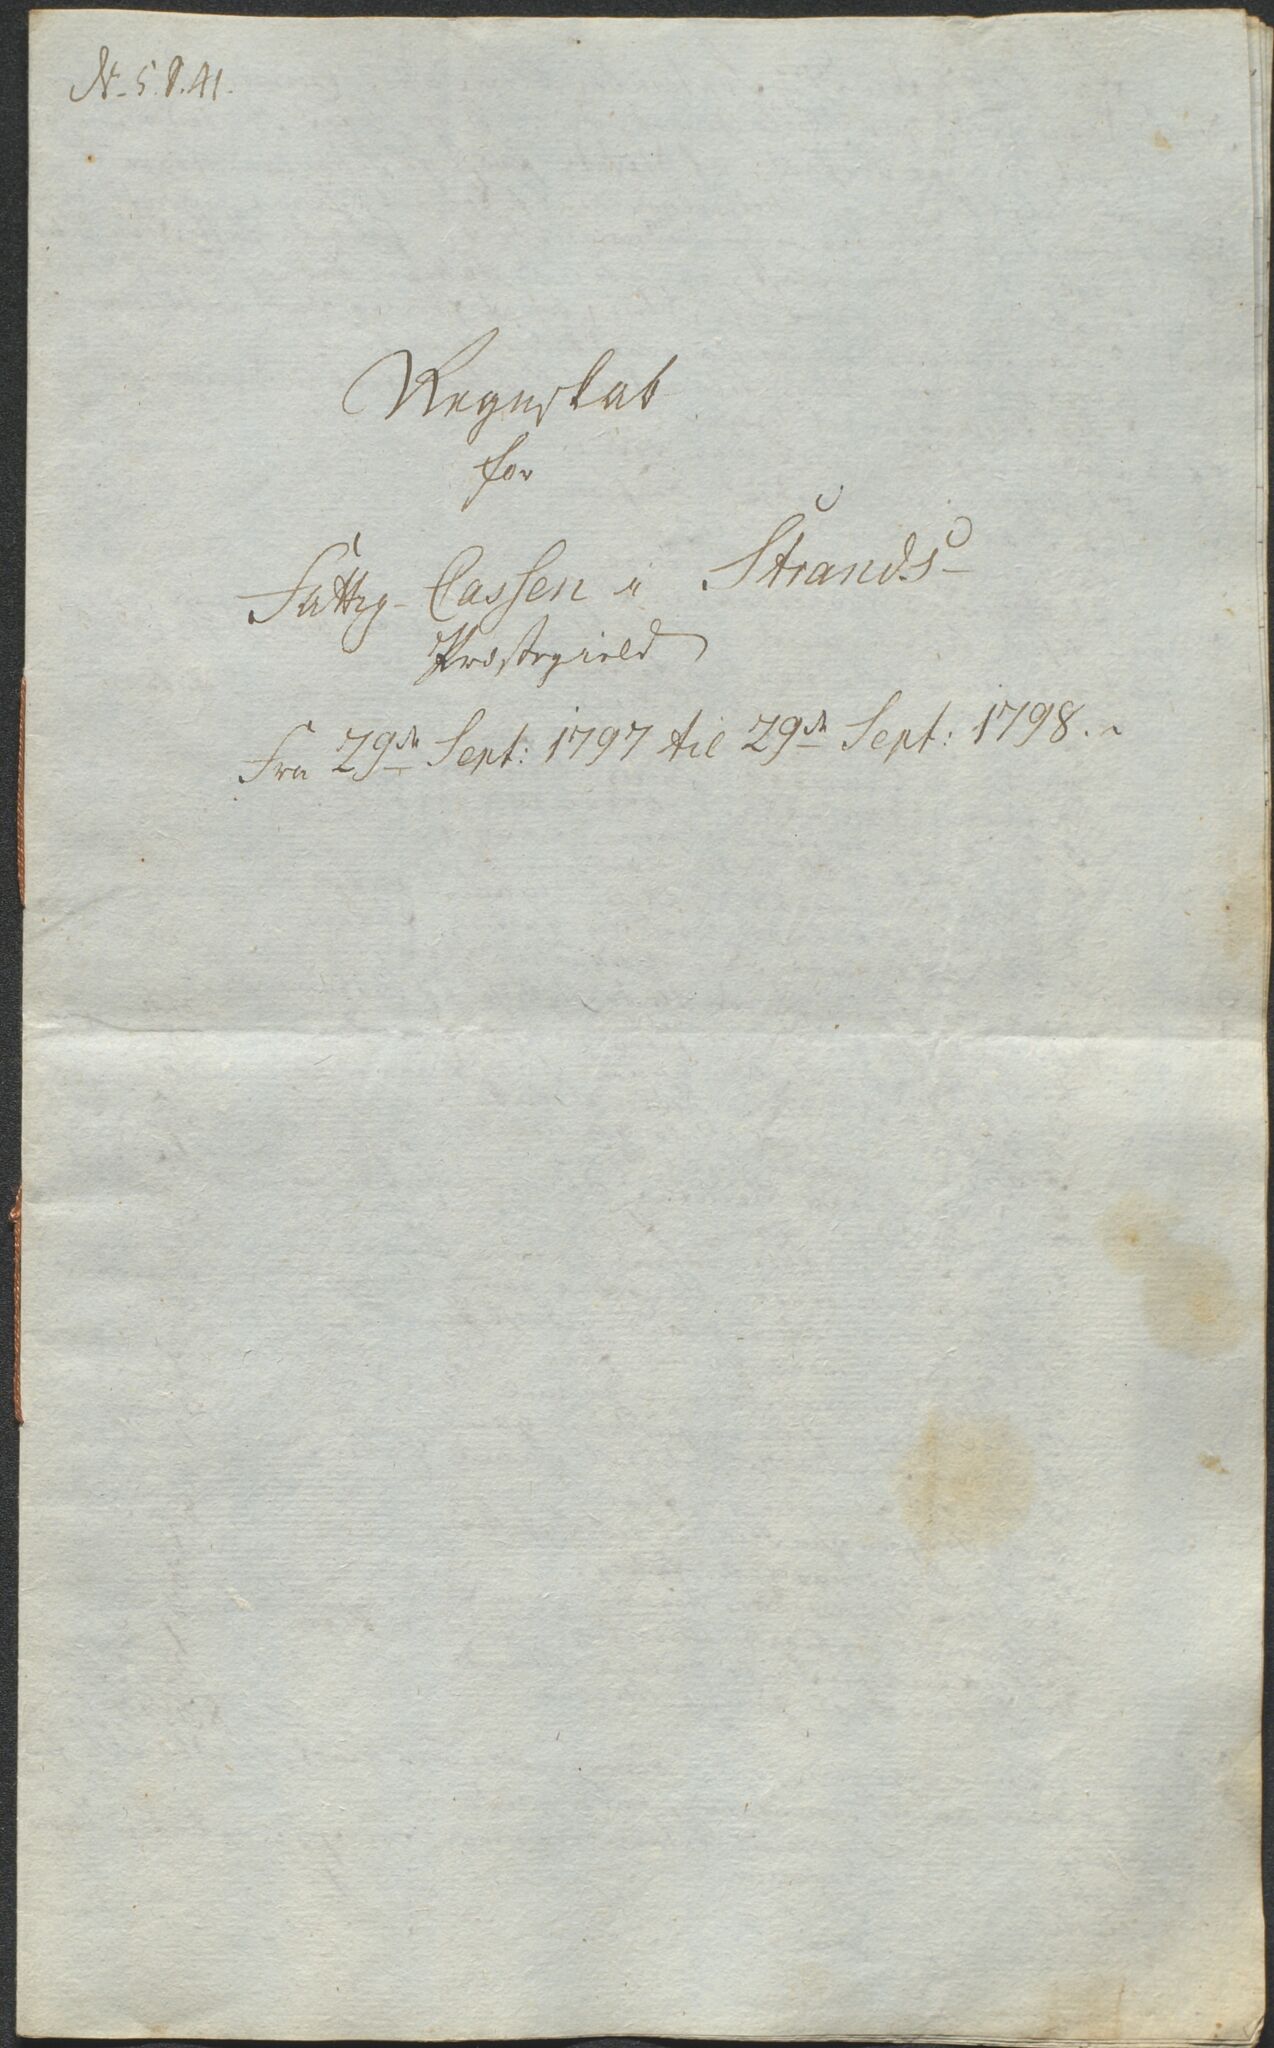 No. 5. P. 41.
Regnskab
for
Fattig-Cassen i Strands-
Præstegield
Fra 29de Sept: 1797 til 29de Sept: 1798.